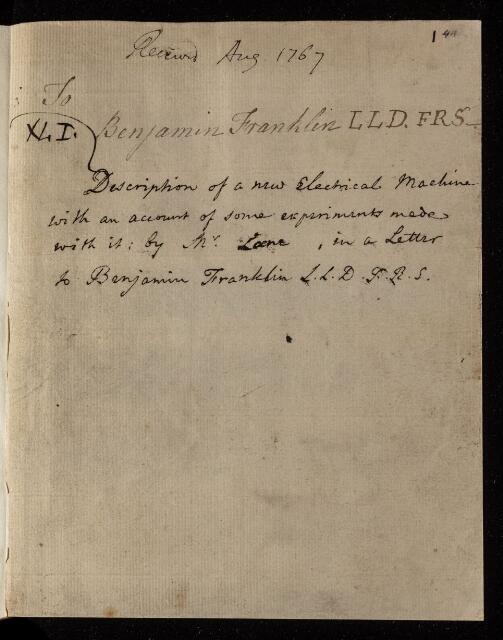 Received Aug. 1767
1
To
XLI.
Benjamin Franklin L L D. F R S
Description of a new Electrical Machine
with an account of some experiments made
with it: by Mr. Lane, in a Letter
to Benjamin Franklin L.L.D. F.R.S.